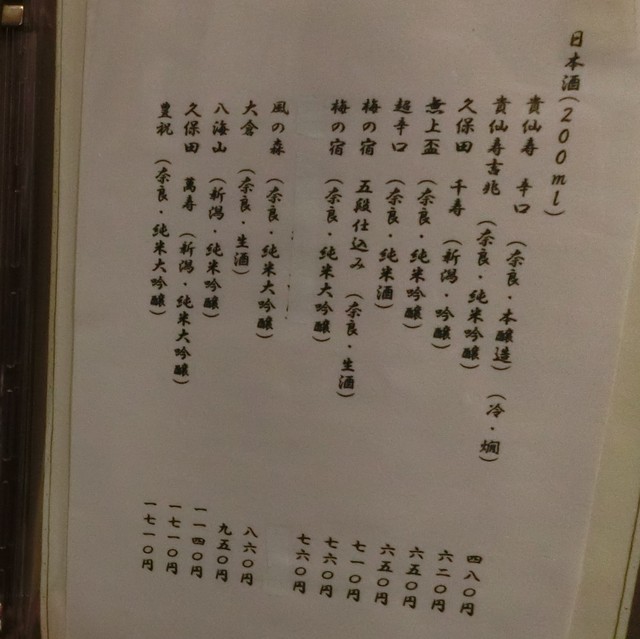 日本酒(200ml)
貴仙寿 辛口 (奈良・本醸造) (冷・燗) 四八〇円
貴仙寿吉兆 (奈良・純米吟醸) 六二〇円
久保田 千寿 (新潟・吟醸) 六五〇円
無上盃 (奈良・純米吟醸) 六五〇円
超辛口 (奈良・純米酒) 七一〇円
梅の宿 五段仕込み (奈良・生酒) 七六〇円
梅の宿 (奈良・純米大吟醸) 七六〇円
風の森 (奈良・純米大吟醸) 八六〇円
大倉 (奈良・生酒) 九五〇円
八海山 (新潟・純米吟醸) 一一四〇円
久保田 萬寿 (新潟・純米大吟醸) 一七一〇円
豊祝 (奈良・純米大吟醸) 一七一〇円